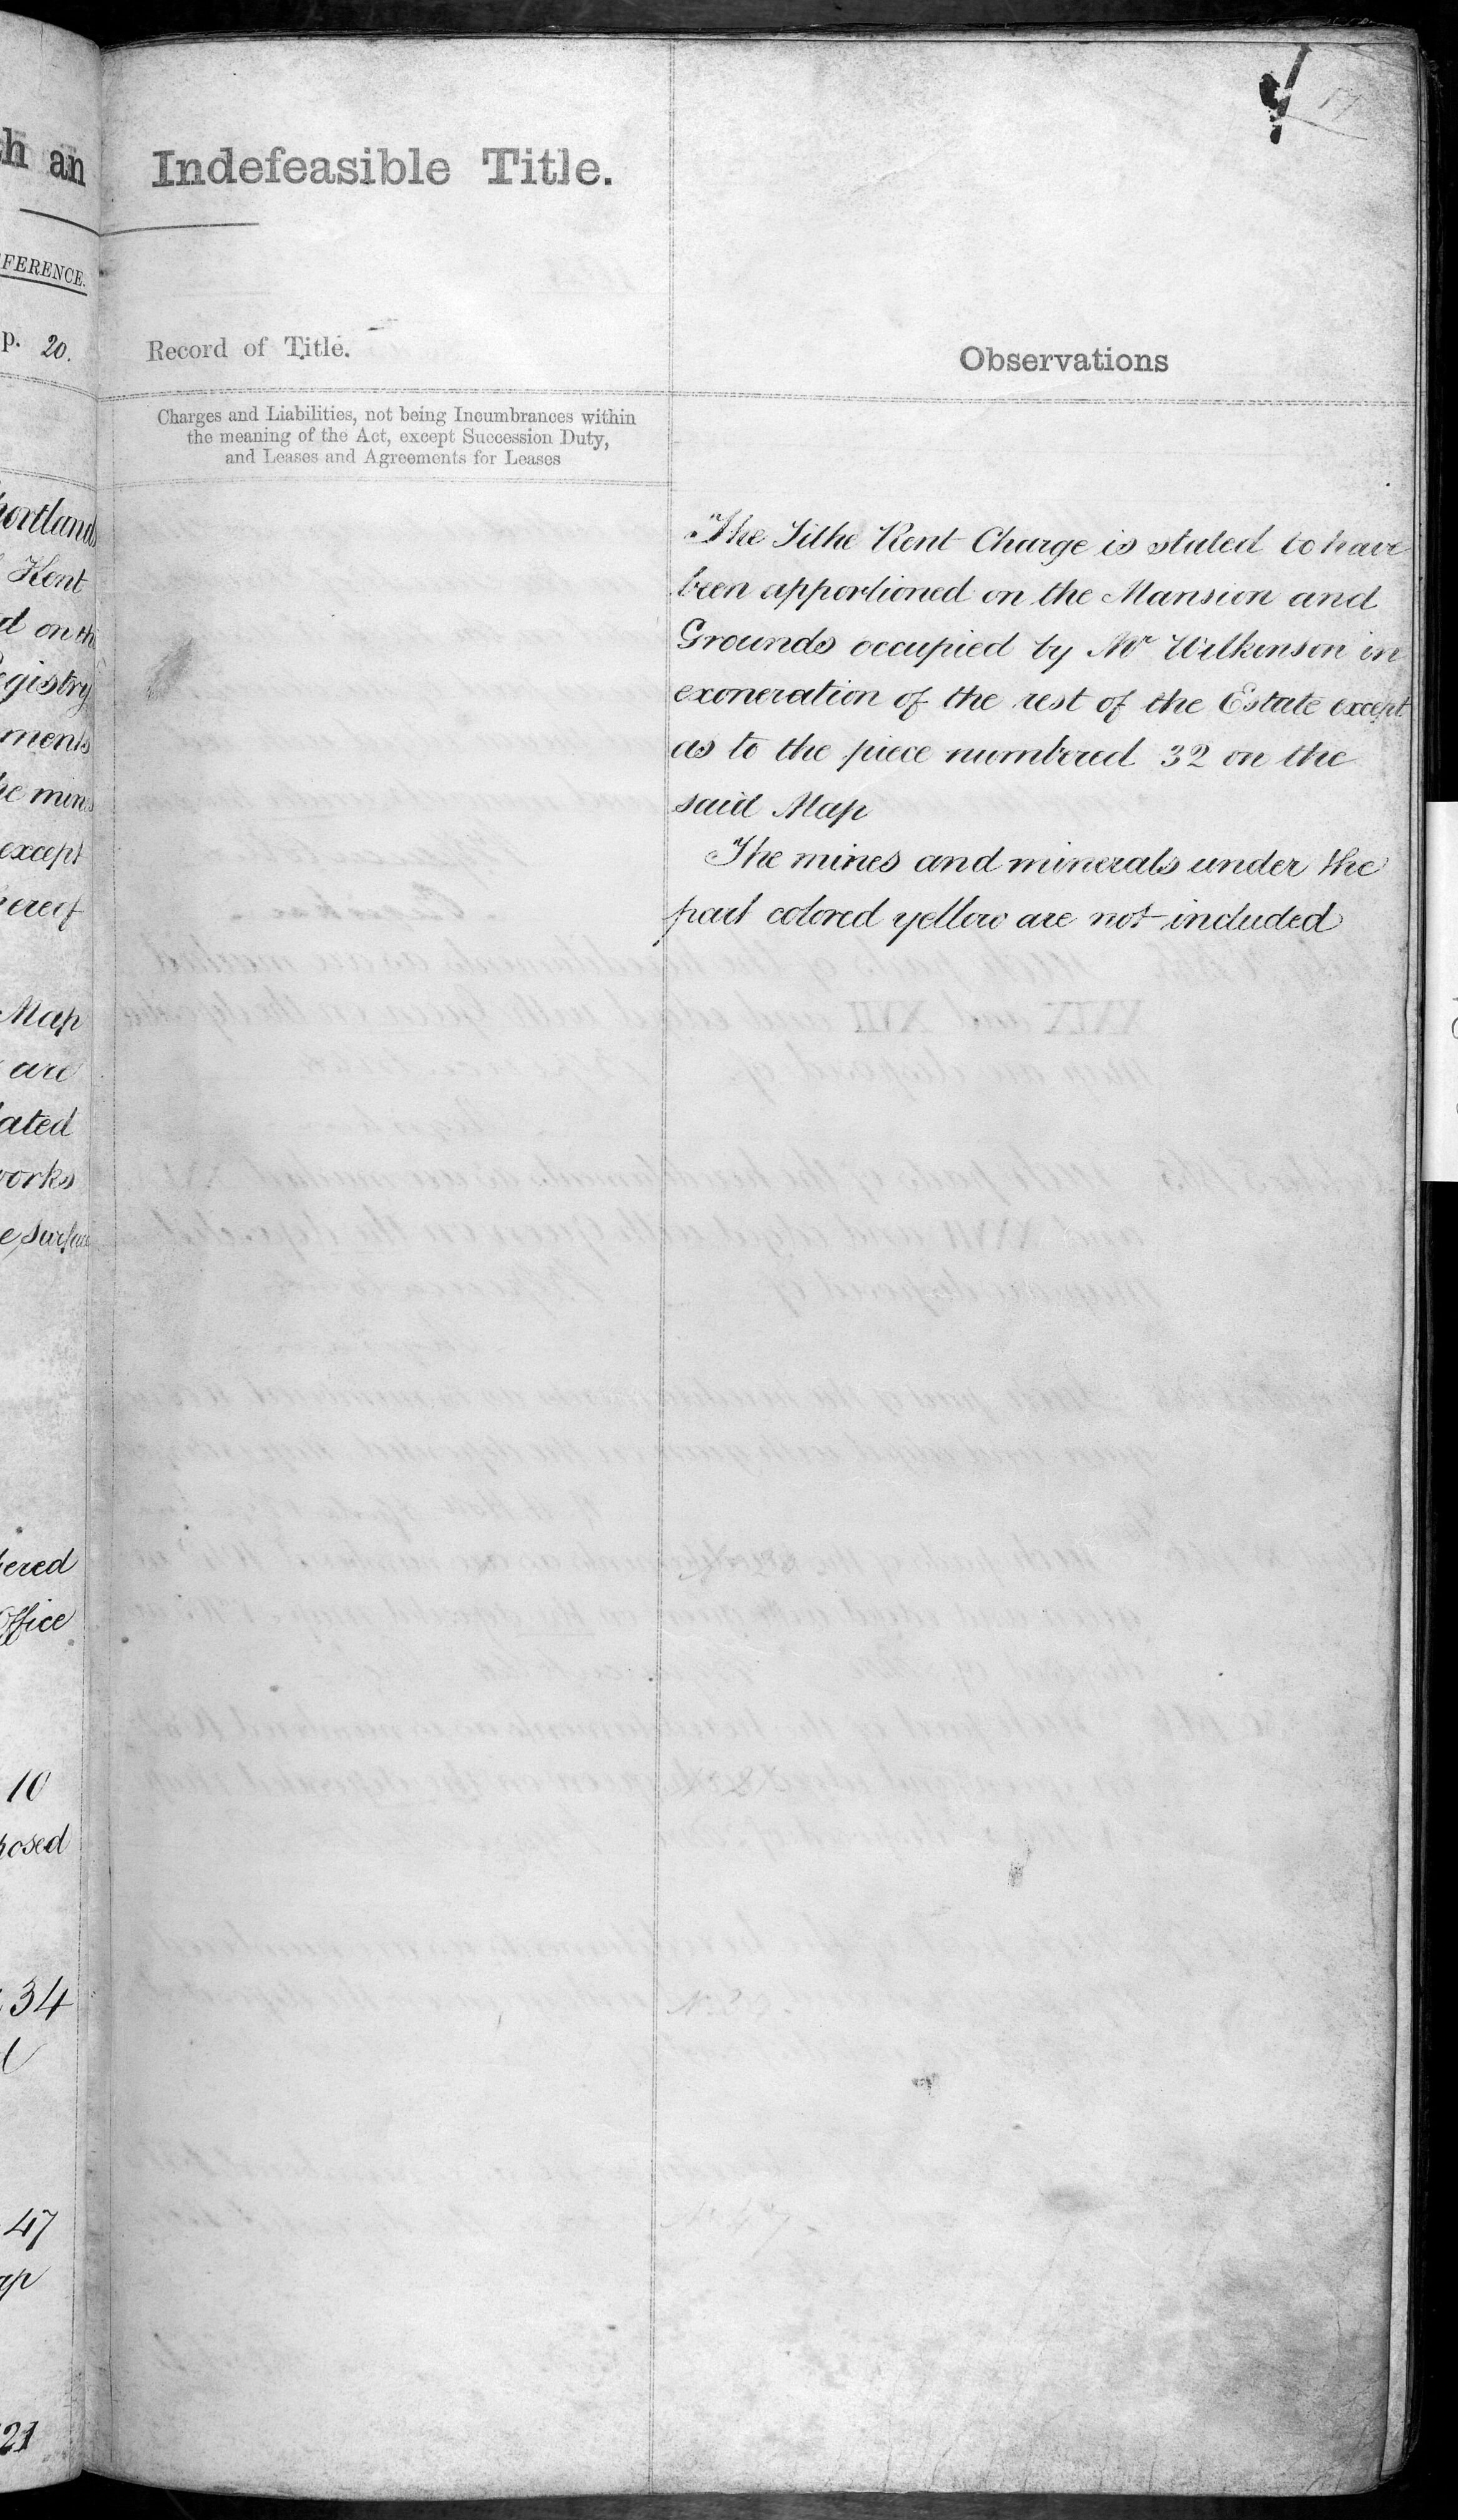 h an
FERENCE.
p. 20.
hortlands
Kent
d on the
egistry
ments
he mines
except
hereof
Map
are
ated
works
e surface
bered
Office
10
posed
34
47
ap
21
17
Indefeasible Title.
Record of Title.
Charges and Liabilities, not being Incumbrances within
the meaning of the Act, except Succession Duty,
and Leases and Agreements for Leases
Observations
The Tithe Rent Charge is stated to have
been apportioned on the Mansion and
Grounds occupied by Mr Wilkinson in
exoneration of the rest of the Estate except
as to the piece numbered 32 on the
said Map
The mines and minerals under the
part colored yellow are not included